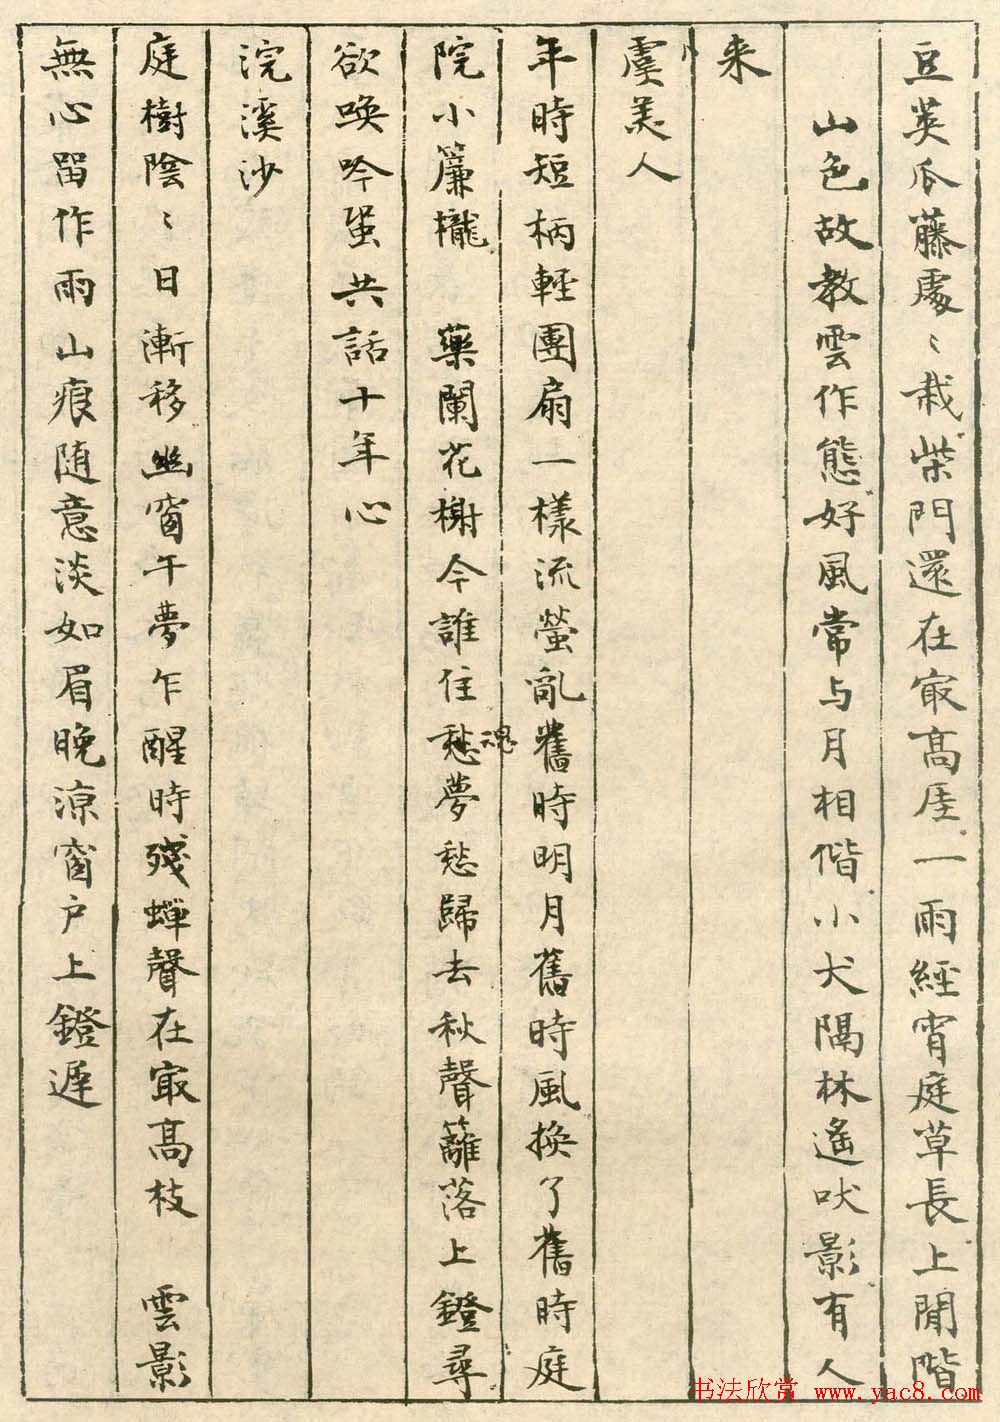 豆莢瓜藤處〻栽柴門還在冣高厓一雨經宵庭草長上閒階
山色故教雲作態好風常与月相偕小犬隔林遙吠影有人
来
虞美人
年時短柄輕團扇一樣流螢亂舊時明月舊時風換了舊時庭
院小簾櫳 藥闌花榭今誰住愁魂夢愁歸去秋聲籬落上鐙尋
欲喚吟蛩共話十年心
浣溪沙
庭樹陰〻日漸移幽窗午夢乍醒時殘蟬聲在冣高枝 雲影
無心留作雨山痕随意淡如眉晚涼窗户上鐙遲
书法欣赏 www.yac8.com